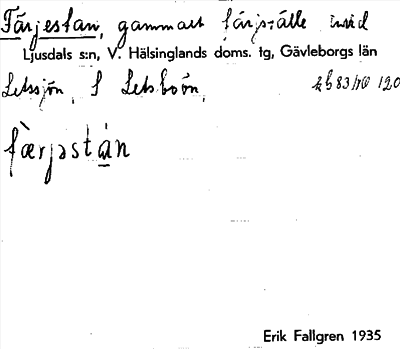 Färjestan, gammalt färjställe invid
Ljusdals s:n, V. Hälsinglands doms. tg, Gävleborgs län
Letssjön, S Letsboön,
færjəstan
Erik Fallgren 1935